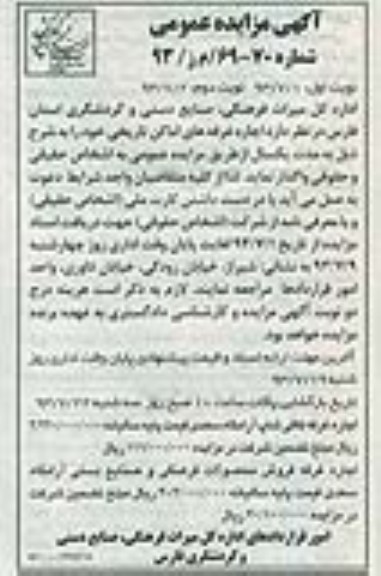 آگهی مزایده عمومی
شماره ۷۰-۶۹/م ز/ ۹۳
نوبت اول: ۹۳/۷/۱ نوبت دوم: ۹۳/۷/۲
اداره کل میراث فرهنگی، صنایع دستی و گردشگری استان
فارس در نظر دارد اجاره غرفه های اماکن تاریخی خود را به شرح
ذیل به مدت یکسال از طریق مزایده عمومی به اشخاص حقیقی
و حقوقی واگذار نماید. لذا از کلیه متقاضیان واجد شرایط دعوت
به عمل می آید با در دست داشتن کارت ملی (اشخاص حقیقی)
و یا معرفی نامه از شرکت (اشخاص حقوقی) جهت دریافت اسناد
مزایده از تاریخ ۹۳/۷/۱ لغایت پایان وقت اداری روز چهارشنبه
۹۳/۷/۹ به نشانی: شیراز، خیابان رودکی، خیابان داوری، واحد
امور قراردادها مراجعه نمایند. لازم به ذکر است هزینه درج
دو نوبت آگهی مزایده و کارشناسی دادگستری به عهده برنده
مزایده خواهد بود.
آخرین مهلت ارائه اسناد و قیمت پیشنهادی پایان وقت اداری روز
شنبه
تاریخ بازگشایی پاکات ساعت ۱۰ صبح روز سه شنبه
اجاره غرفه آرامگاه سعدی قیمت پایه سالیانه
ریال مبلغ تضمین شرکت در مزایده ریال
اجاره غرفه فروش محصولات فرهنگی و صنایع دستی آرامگاه
سعدی قیمت پایه سالیانه ریال مبلغ تضمین شرکت
در مزایده ریال
امور قراردادهای اداره کل میراث فرهنگی، صنایع دستی
و گردشگری فارس